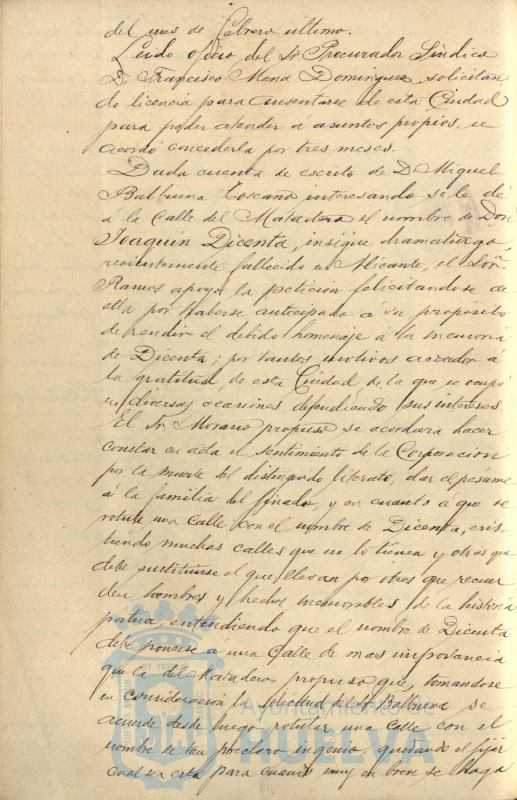 del mes de Febrero último.
Leido oficio del Sr Procurador Síndico
D. Francisco Mena Dominguez, solicitan
do licencia para ausentarse de esta Ciudad
para poder atender á asuntos propios, se
acordó concederla por tres meses.
Dada cuenta de escrito de D. Miguel
Balbuena Toscano interesando se le dé
á la Calle del Matadero el nombre de Don
Joaquin Dicenta, insigne dramaturgo,
recientemente fallecido en Alicante, el Sor
Ramos apoya la petición felicitandose de
ella por haberse anticipado a su propósito
de rendir el debido homenaje á la memoria
de Dicenta; por tantos motivos acreedor á
la gratitud de esta Ciudad de la que se ocupó
en diversas ocasiones defendiendo sus intereses.
El Sr. Morano propuso se acordara hacer
constar en acta el sentimiento de la Corporacion
por la muerte del distinguido literato, dar el pésame
á la familia del finado, y en cuanto á que se
rotule una Calle con el nombre de Dicenta, exis
tiendo muchas calles que no lo tienen y otras que
debe sustituirse el que llevan por otros que recuer
den hombres y hechos memorables de la historia
patria, entendiendo que el nombre de Dicenta
debe ponerse á una Calle de mas importancia
que la del Matadero, propuso que, tomandose
en consideración la solicitud del Sr Balbuena se
acuerde desde luego rotular una Calle con el
nombre de tan preclaro ingenio, quedando el fijar
cual sea esta para cuando muy en breve se haga
Ayuntamiento de
HUELVA